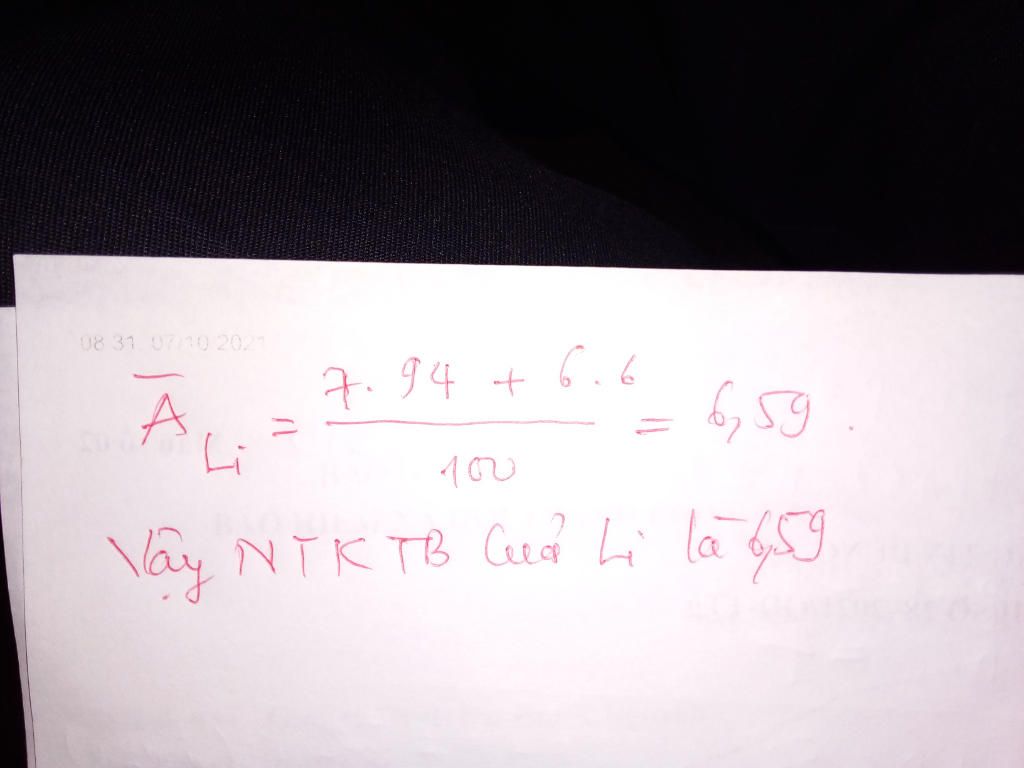 08 31, 07/10 2021
A̅ Li = 7.94 + 6.6 / 100 = 6,59.
Vậy NTKTB của Li là 6,59